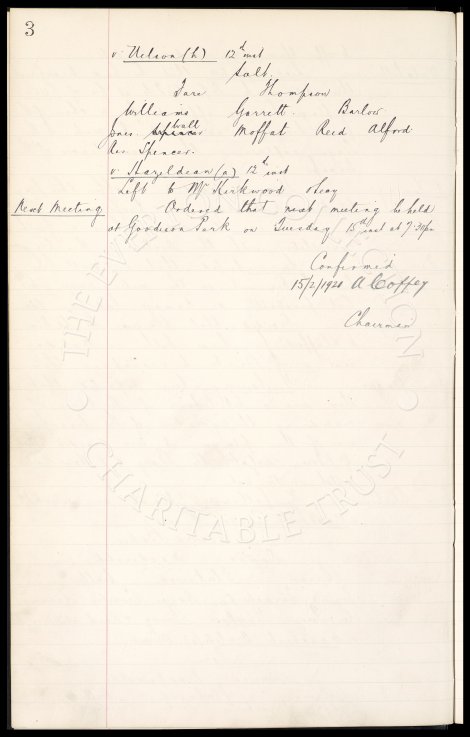 3
v Nelson (h) 12th inst
Salt.
Fare Thompson
Williams Garrett. Barlow
Jones. Wall Moffat Reed Alford.
Res. Spencer.
v Hazeldean (a) 12th inst
Left to Mr Kirkwood & Secy
Next Meeting Ordered that next meeting be held
at Goodison Park on Tuesday 15th inst at 7.30pm
Confirmed
15/2/1921 A Coffey
Chairman
THE EVERTON
CHARITABLE TRUST